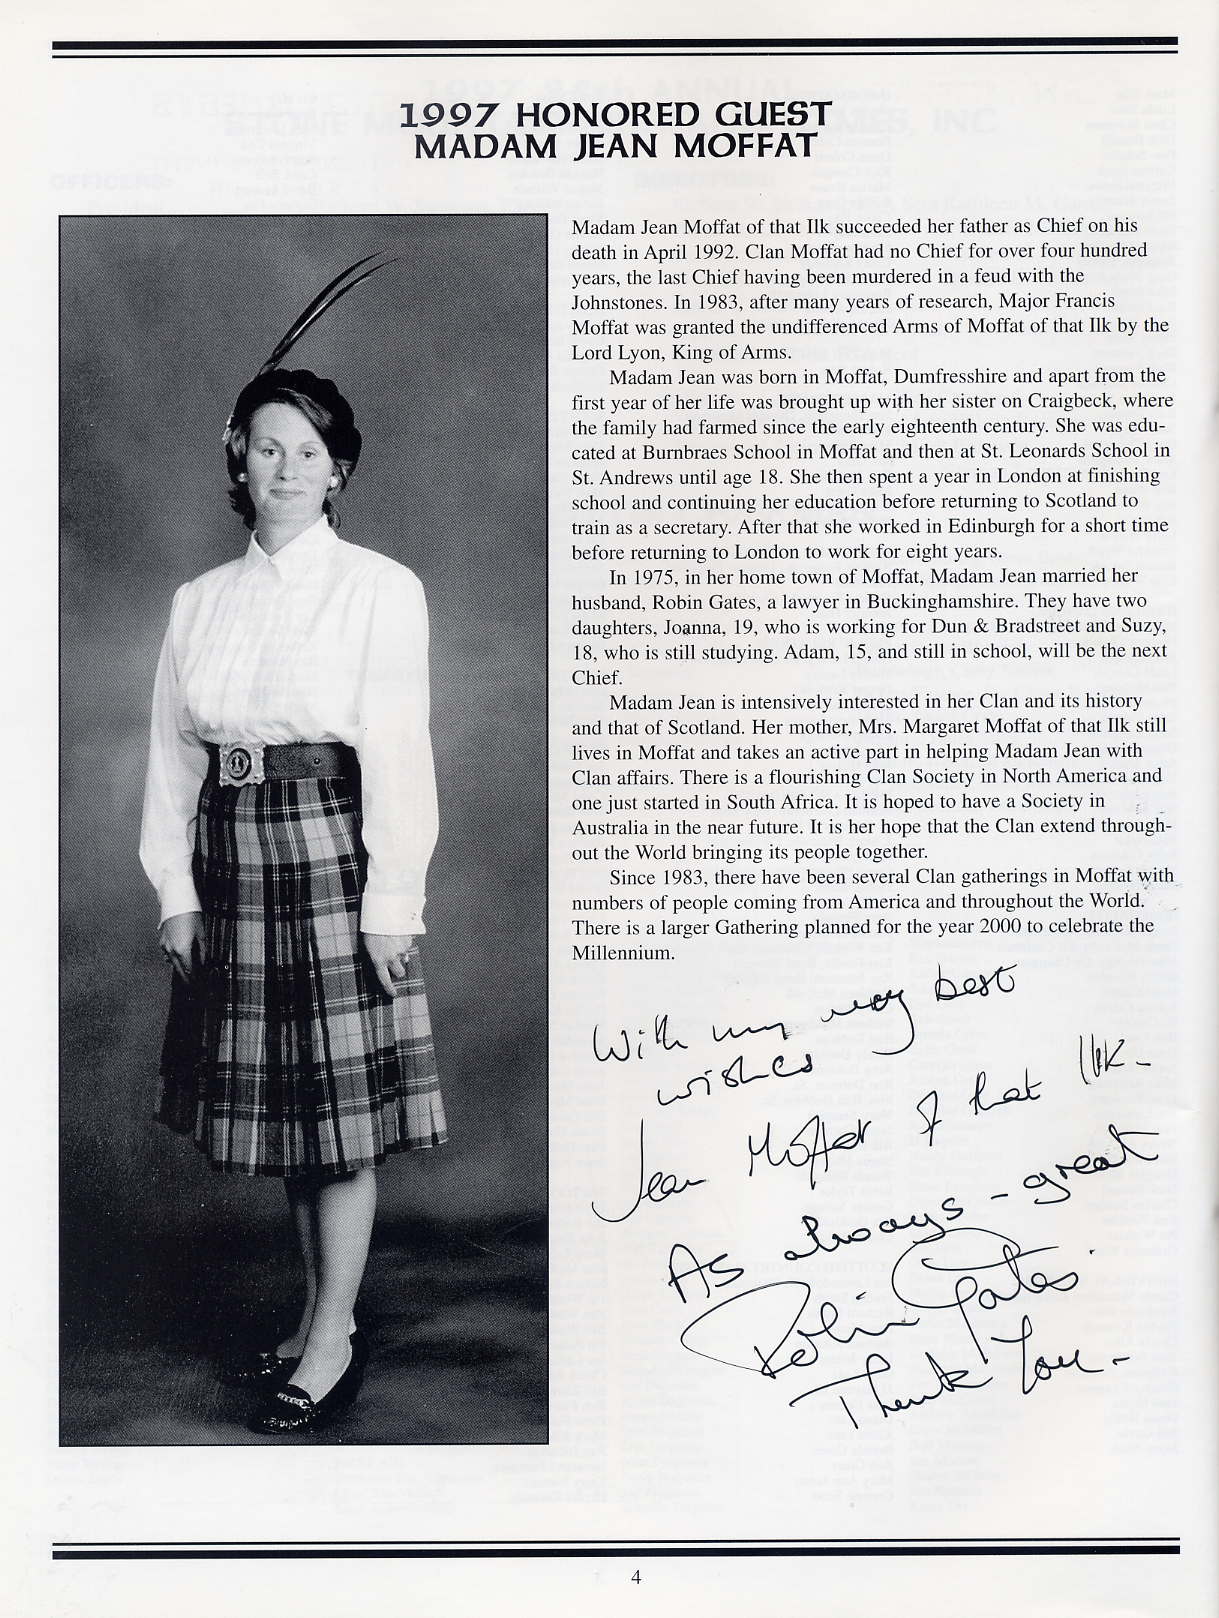 1997 HONORED GUEST
MADAM JEAN MOFFAT
Madam Jean Moffat of that Ilk succeeded her father as Chief on his
death in April 1992. Clan Moffat had no Chief for over four hundred
years, the last Chief having been murdered in a feud with the
Johnstones. In 1983, after many years of research, Major Francis
Moffat was granted the undifferenced Arms of Moffat of that Ilk by the
Lord Lyon, King of Arms.
Madam Jean was born in Moffat, Dumfresshire and apart from the
first year of her life was brought up with her sister on Craigbeck, where
the family had farmed since the early eighteenth century. She was edu-
cated at Burnbraes School in Moffat and then at St. Leonards School in
St. Andrews until age 18. She then spent a year in London at finishing
school and continuing her education before returning to Scotland to
train as a secretary. After that she worked in Edinburgh for a short time
before returning to London to work for eight years.
In 1975, in her home town of Moffat, Madam Jean married her
husband, Robin Gates, a lawyer in Buckinghamshire. They have two
daughters, Joanna, 19, who is working for Dun & Bradstreet and Suzy,
18, who is still studying. Adam, 15, and still in school, will be the next
Chief.
Madam Jean is intensively interested in her Clan and its history
and that of Scotland. Her mother, Mrs. Margaret Moffat of that Ilk still
lives in Moffat and takes an active part in helping Madam Jean with
Clan affairs. There is a flourishing Clan Society in North America and
one just started in South Africa. It is hoped to have a Society in
Australia in the near future. It is her hope that the Clan extend through-
out the World bringing its people together.
Since 1983, there have been several Clan gatherings in Moffat with
numbers of people coming from America and throughout the World.
There is a larger Gathering planned for the year 2000 to celebrate the
Millennium.
With my very best
wishes
Jean Moffat of that Ilk -
As always - great
Robin Gates
Thank You -
4